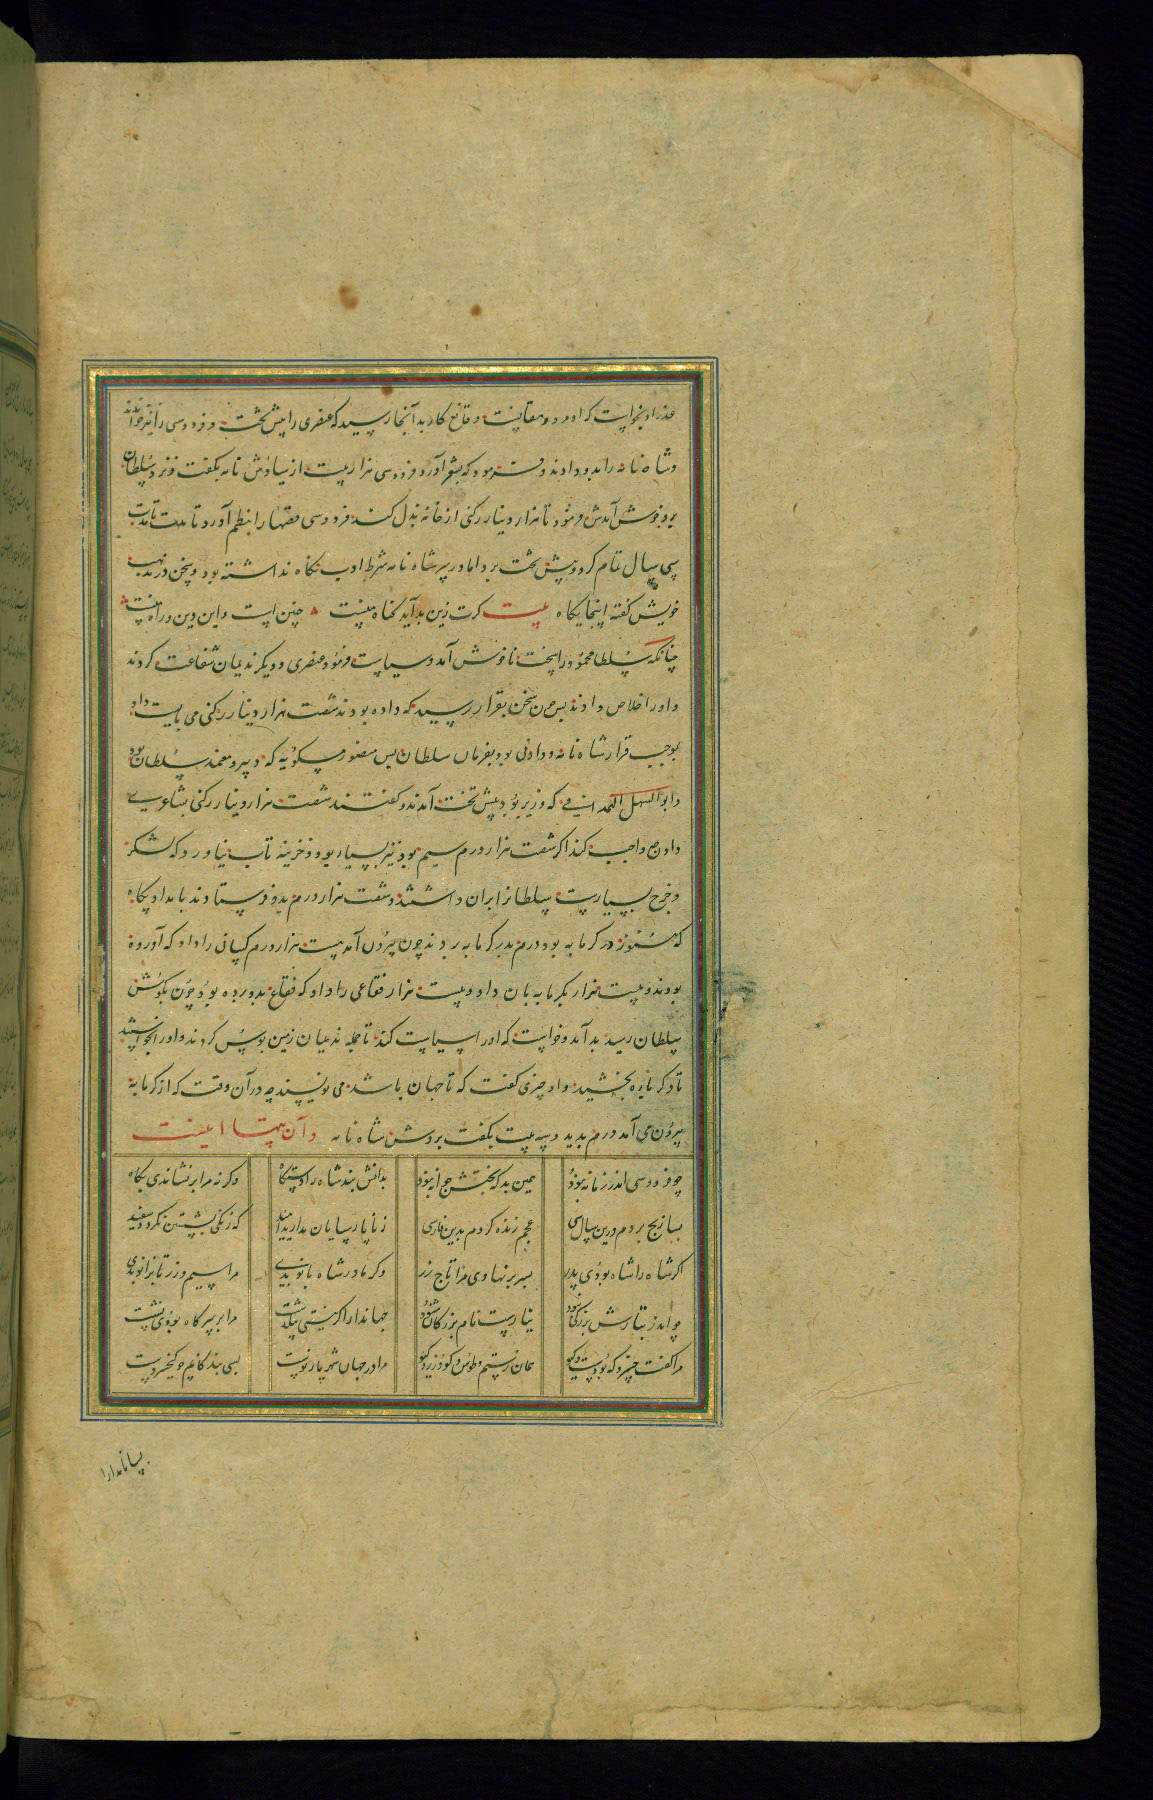 عذر او بخواست که او مرد دهقانیست و قانع کار بدآنجا رسید که عنصری را پیش تخت و فردوسی را نیز خواندند
و شاه نامه را بدو دادند و فرمود که بشعر آرد و فردوسی هزار بیت از سیاوش نامه بگفت و نزد سلطان
برد خوش آمدش فرمود تا هزار دینار رکنی از خانه بذل کنند فردوسی قصها را بنظم آورد تا مدت
سی سال تمام کرد و پیش تخت برد اما در سر شاه نامه شرط ادب نگاه نداشته بود و سخن در مذهب
خویش گفته اینجایگاه بیت گرت زین بد آید گناه منست چنین است و این دین و راه منست
چنانکه سلطان محمود را سخت ناخوش آمد و سیاست فرمود عنصری و دیگر ندیمان شفاعت کردند
و او را خلاص دادند پس چون سخن بقرار رسید که داده بودند شصت هزار دینار رکنی می بایست داد
بموجب قرار شاه نامه و دادنی بود بفرمان سلطان پس منصور مسکویه که دبیر و معتمد سلطان بود
و ابو السهل الحمدانی که وزیر بود پیش تخت آمدند و گفتند شصت هزار دینار رکنی بشاعری
دادن چه واجب کند اگر شصت هزار درم سیم بود نیز بسیار بود و خزینه تاب نیاورد که لشکر
و خرج بسیارست سلطان را بران داشتند و شصت هزار درم بدو فرستادند بامداد پگاه
که هنوز در گرمابه بود درم بدر گرمابه بردند چون بیرون آمد بیست هزار درم کسانی را داد که آورده
بودند و بیست هزار بگرمابه بان داد و بیست هزار فقاعی را داد که فقاع بدو برده بود چون بگوش
سلطان رسید بد آمد و خواست که او را سیاست کند تا جمله ندیمان زمین بوس کردند و او را بخواستند
تا دگر باره بخشید و او چیزی گفت که تا جهان باشد می نویسند چه در آن وقت که از گرمابه
بیرون می آمد درم بدید و سه بیت بگفت بر دوش شاه نامه و آن بیتها اینست
چو فردوسی اندر زمانه نبود همین بد که بختش جوانه نبود بدانش نبد شاه را دستگاه وگرنه مرا برنشاندی بگاه
بسا رنج بردم درین سال سی عجم زنده کردم بدین فارسی ز ناپارسایان مدارید امید که زنگی بشستن نگردد سفید
اگر شاه را شاه بودی پدر بسر بر نهادی مرا تاج زر وگر مادر شاه بانو بدی مرا سیم و زر تا بزانو بدی
چو اندر تبارش بزرگی نبود نیارست نام بزرگان شنود جهاندار اگر نیستی تنگدست مرا بر سر گاه بودی نشست
مرا گفت خسرو که بودست و گیو همان رستم و طوس و گودرز و نیو مرا در جهان شهریاری نوست بسی بندگانم چو کیخسروست